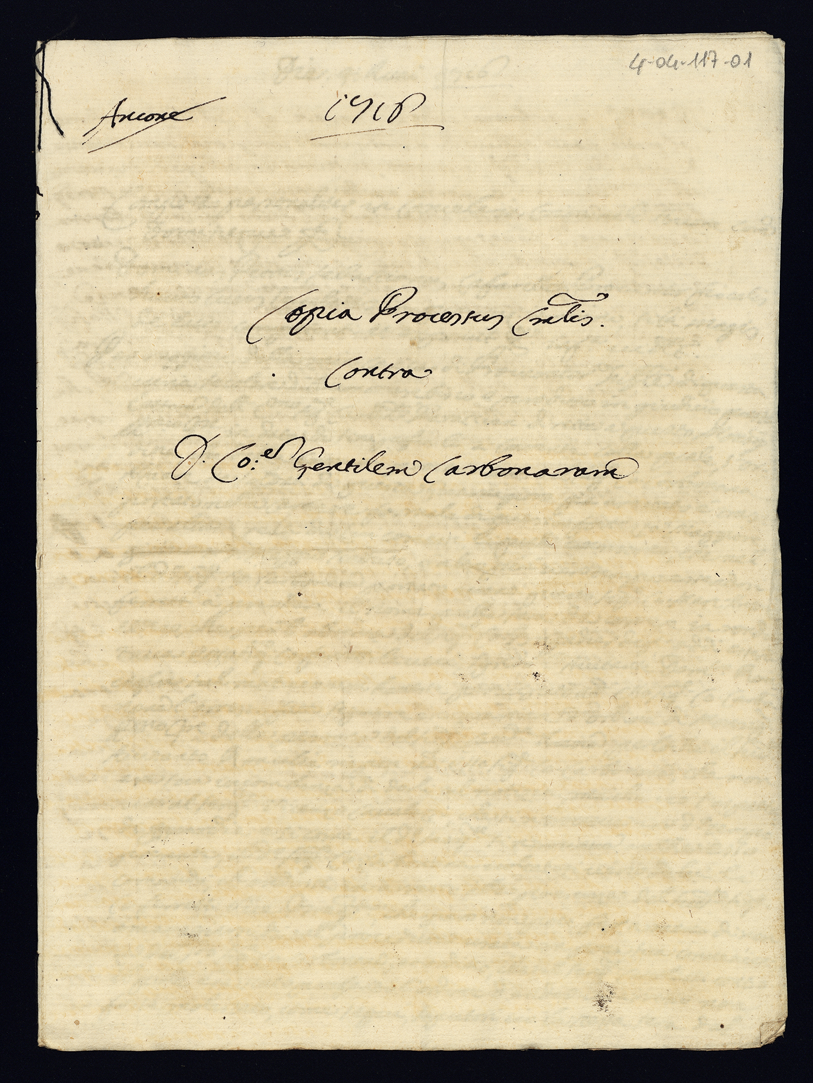 4-04-117-01
Ancone 1716
Copia Processus Cralis.
Contra
D. Co:el Gentilem Carbonaram